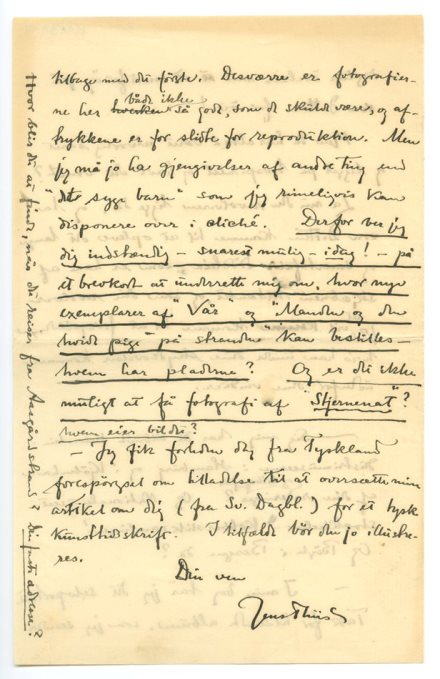 tilbage med det første. Desværre er fotografier-
ne her både ikke så godt, som de skulde være, og af-
trykkene er for slidte for reproduktion. Men
jeg må jo ha gjengivelser af andre ting end
"det syge barn" som jeg rimeligvis kan
disponere over i cliché. Derfor ber jeg
dig indstændig – snarest mulig – idag! – på
et brevkort at underrette mig om, hvor mye
exemplarer af "Vår" og "Manden og den
hvide pige" på stranden" kan bestilles –
hvem har pladerne? Og er det ikke
muligt at få fotografi af "Stjernenat"?
hvem eier bildet?
– Jeg fik forleden dag fra Tyskland
forespørgsel om tilladelse til at oversætte min
artikel om dig (fra Sv. Dagbl.) for et tysk
kunsttidsskrift. I tilfælde bør den jo illustre-
res.
Din ven
Jens Thiis
Hvor blir du at finde, når du reiser fra Aasgårdstrand? Din faste adresse?